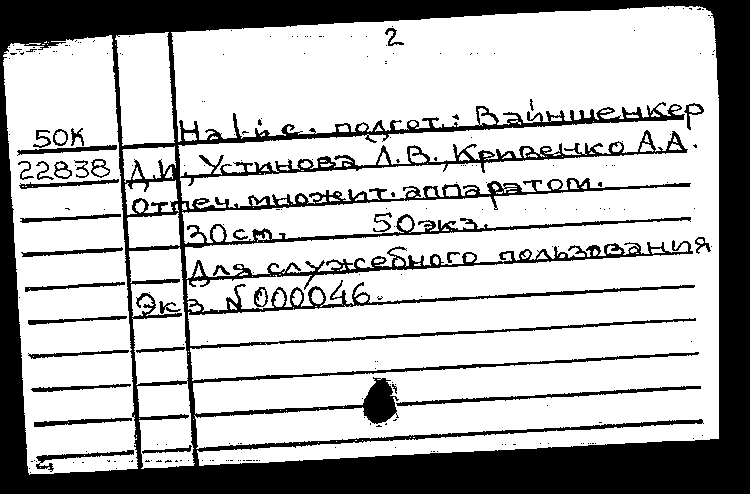 2
50К На 1-й с. подгот.: Вайншенкер
22838 Д.И., Устинова Л.В., Кривенко А.А.
Отпеч. множит. аппаратом.
30 см. 50 экз.
Для служебного пользования
Экз. N 000046.